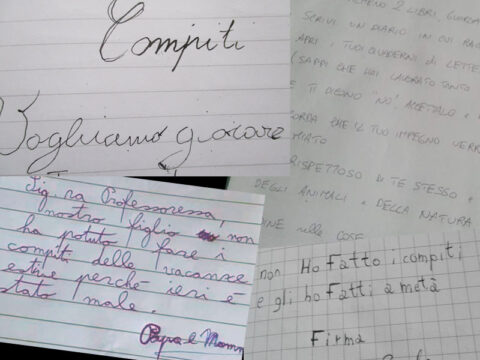 Compiti
Vogliamo giocare
2 LIBRI, GUARDA
SCRIVI UN DIARIO IN CUI RAC
APRI I TUOI QUADERNI DI LETTE
(SAPPI CHE HAI LAVORATO TANTO
E TI DICONO "NO" ACCETTALO E
CORDA CHE IL TUO IMPEGNO VERR
MIATO
RISPETTOSO DI TE STESSO E
DEGLI ANIMALI E DELLA NATURA
nelle COSE
Sig.ra Professoressa,
nostro figlio non
ha potuto fare i
compiti delle vacanze
estive perché ieri è
stato male.
Papà e Mamm
non Ho fatto i compiti
e gli ho fatti a metà
Firma